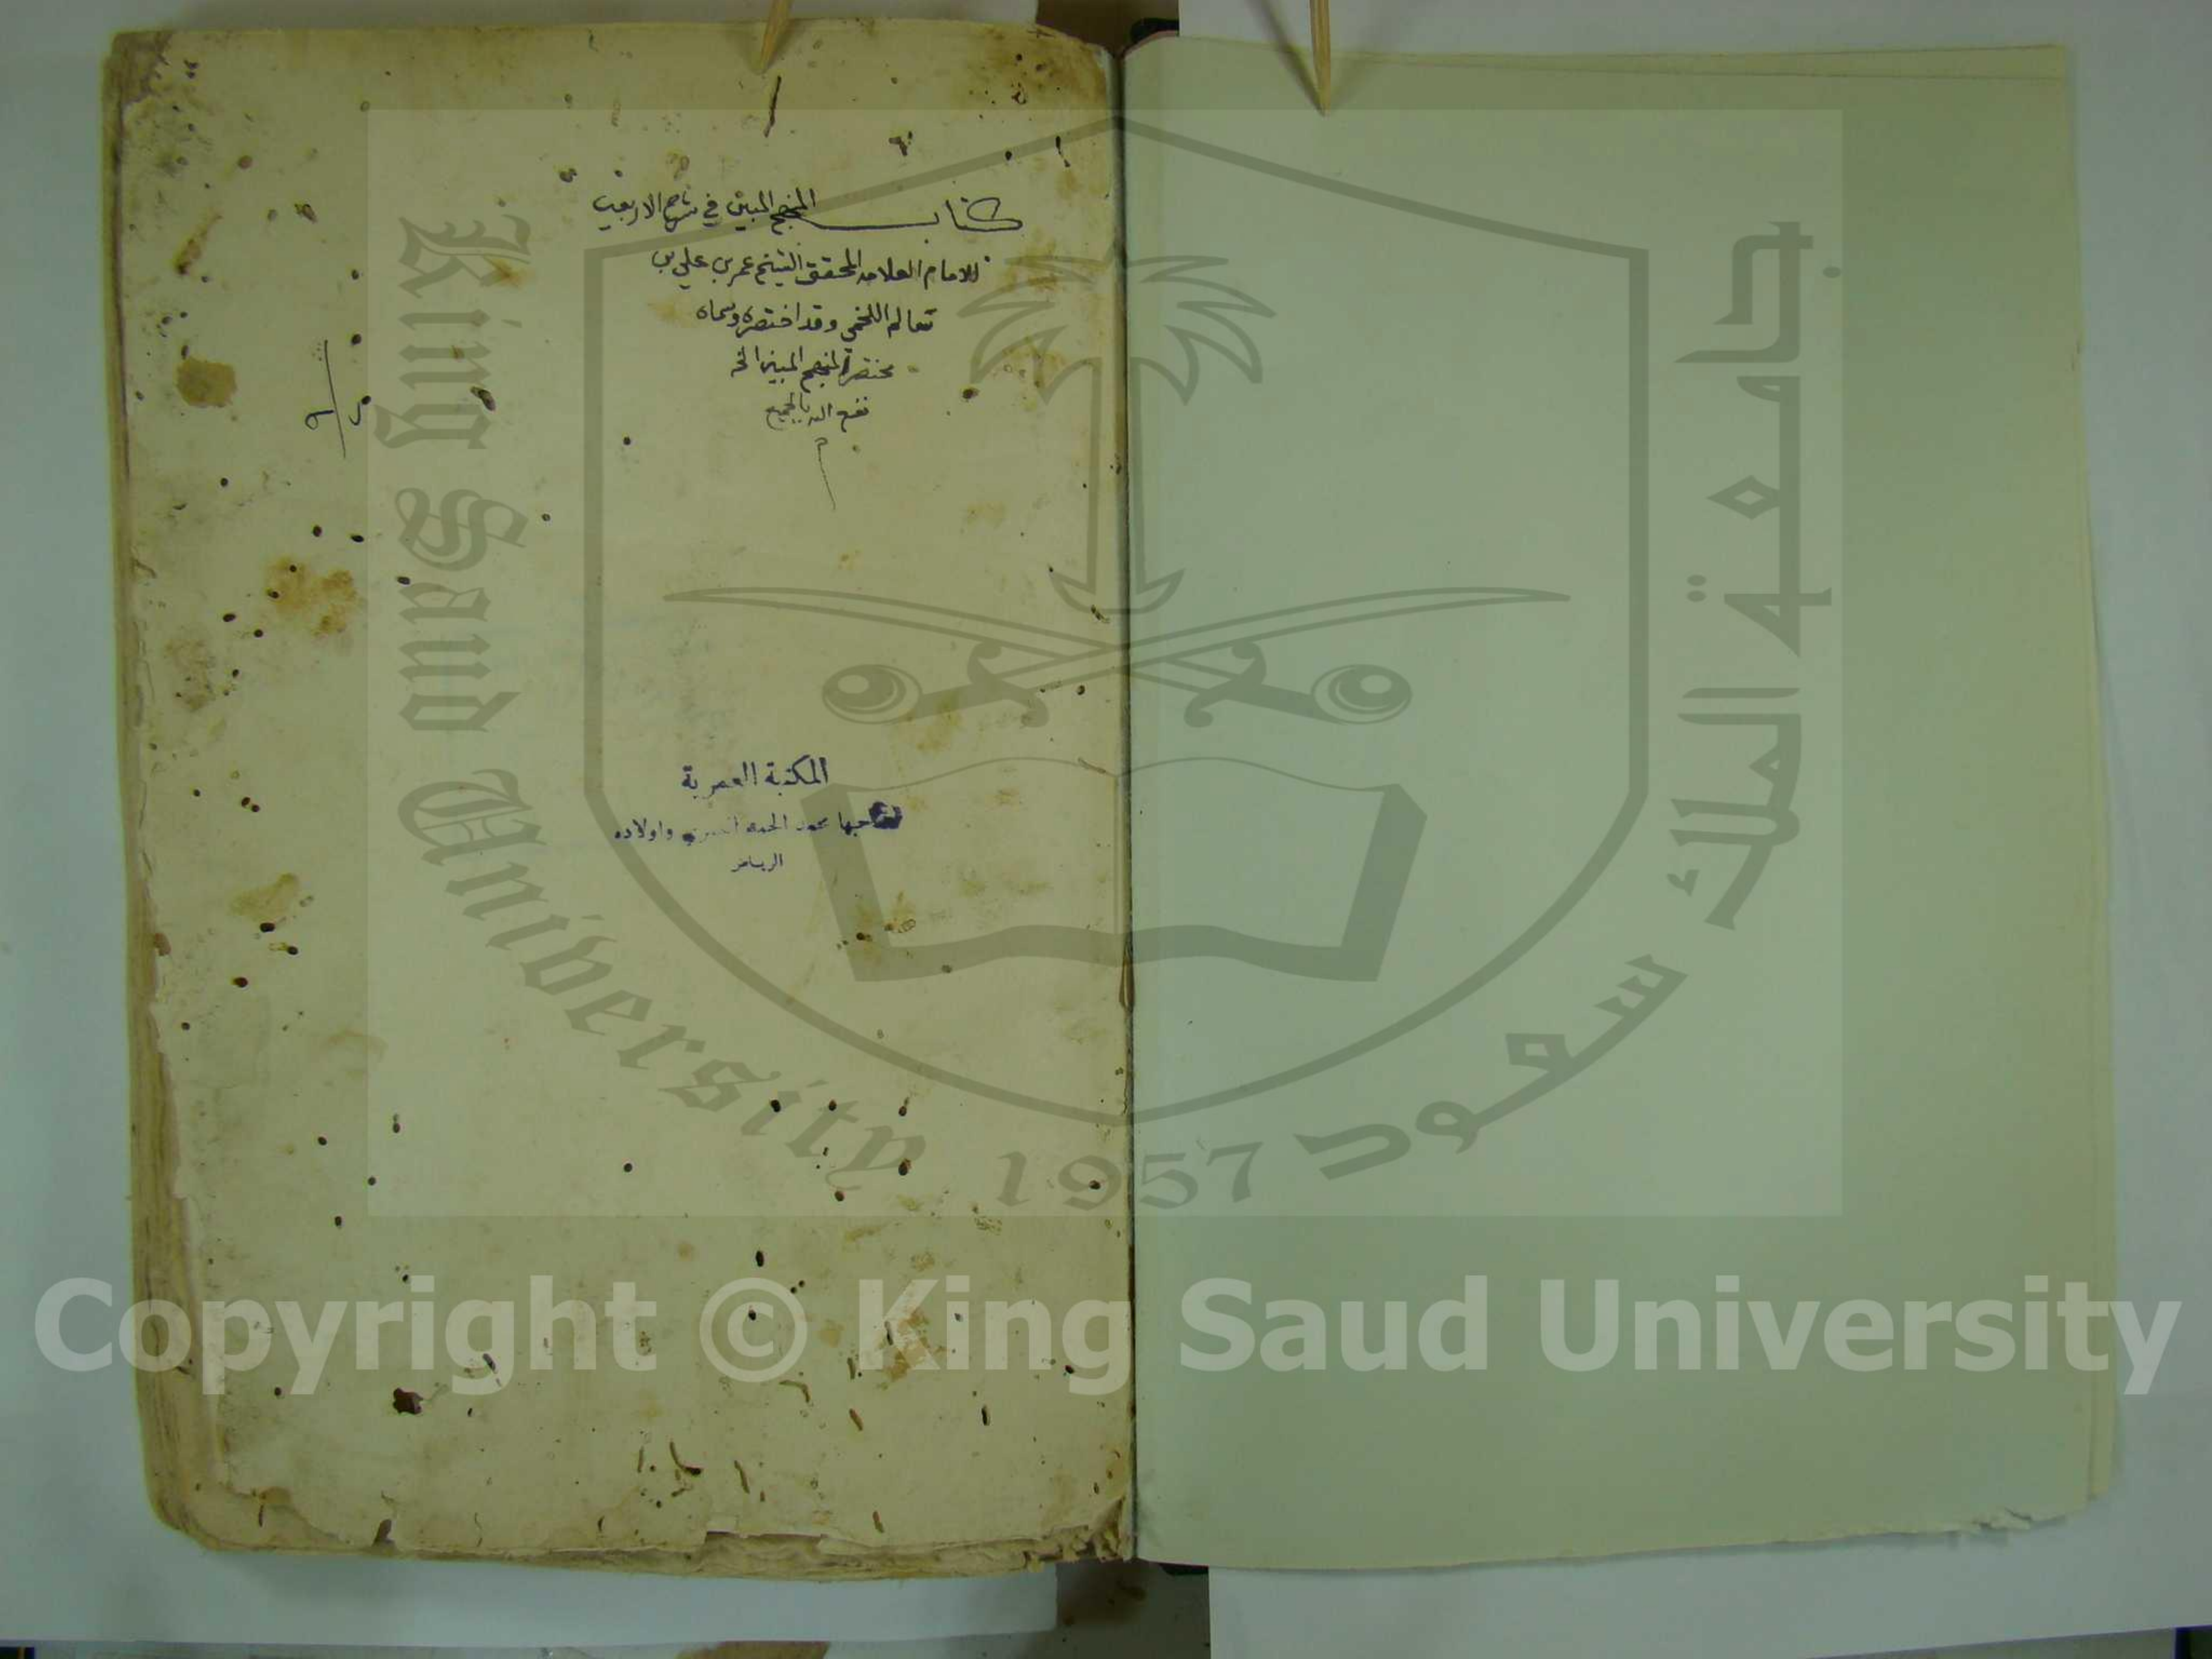 كتاب المنهج المبين في شرح الاربعين
للامام العلامه المحقق الشيخ عمر بن علي بن
سالم اللخمي وقد اختصره وسماه
مختصر المنهج المبين الخ
نفع الله بالجميع
م
المكتبة العمرية
صاحبها محمد الحمد العمري واولاده
الرياض
King Saud University
1957
جامعة الملك سعود
Copyright © King Saud University